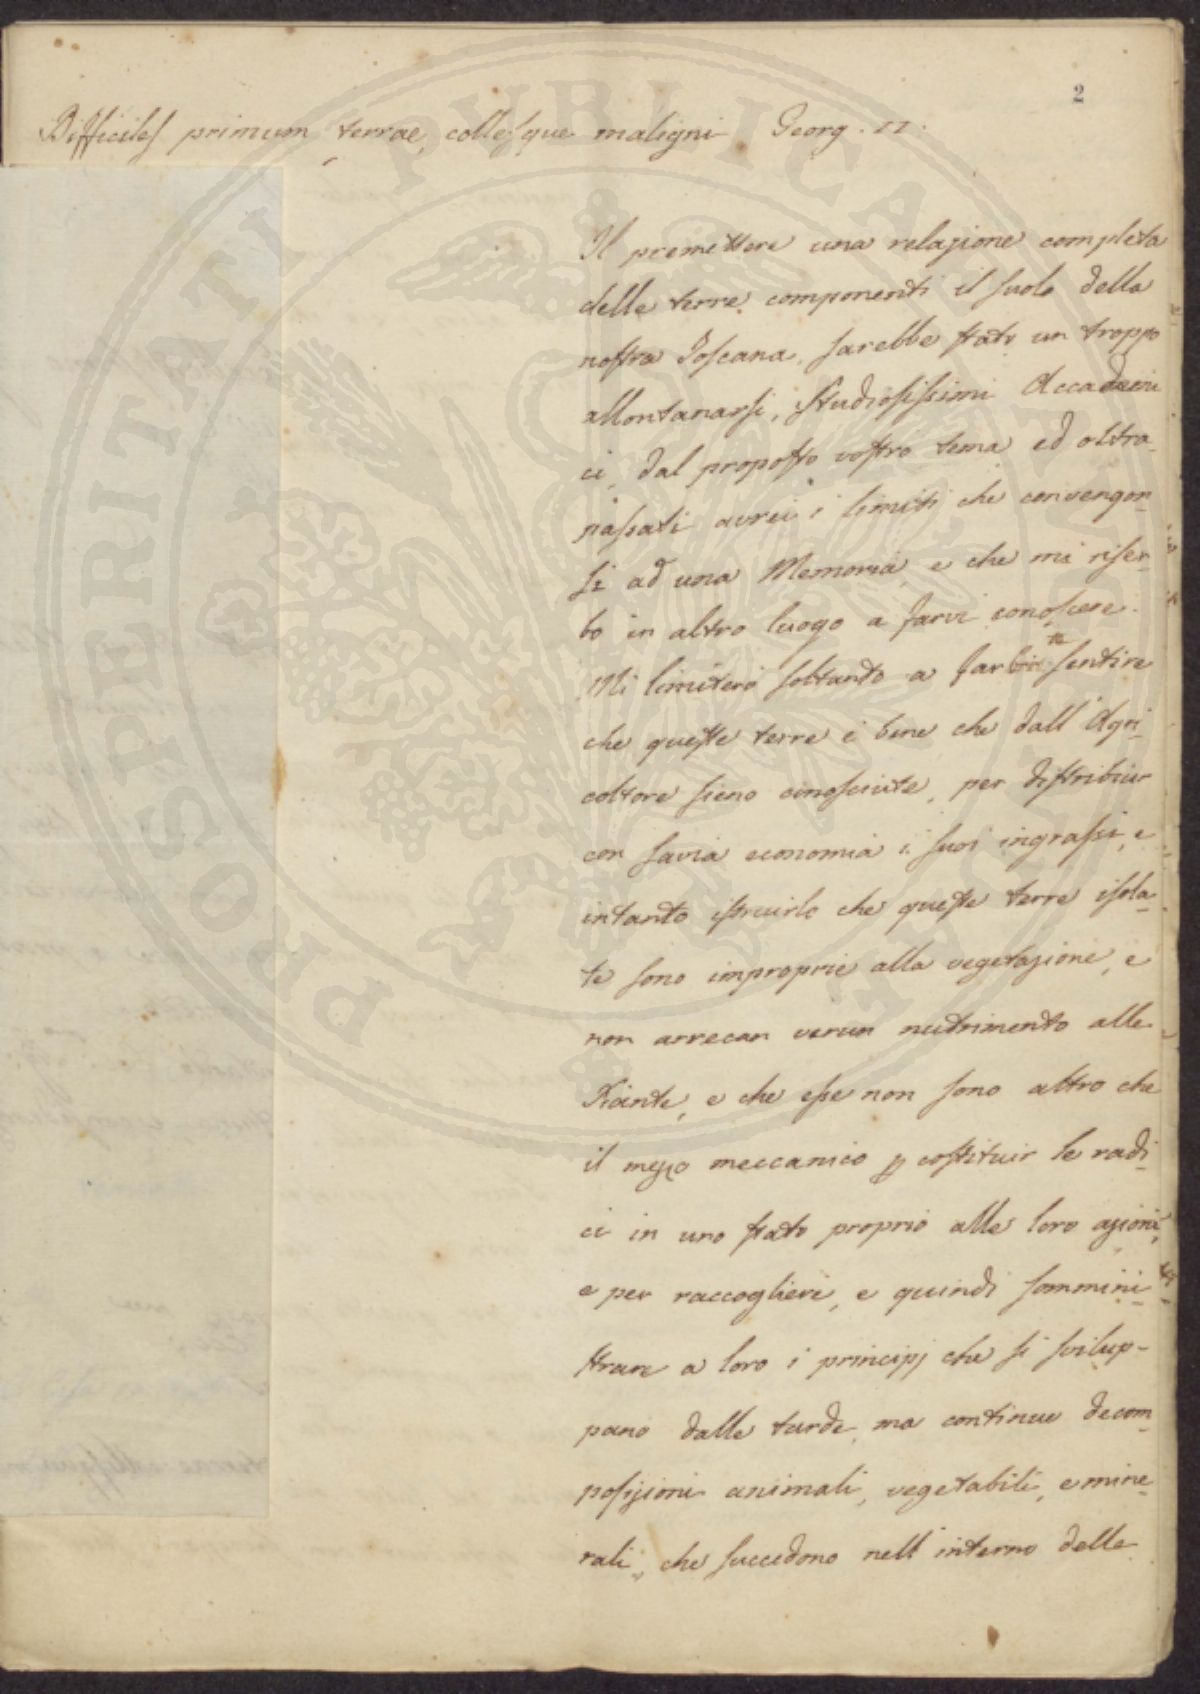 2
Difficiles primum terrae, collesque maligni Georg. II.
Il premettere una relazione completa
delle terre componenti il suolo della
nostra Toscana, sarebbe stato un troppo
allontanarsi, Studiosissimi Accademi
ci, dal proposto vostro tema ed oltra-
passati avrei i limiti che convengon-
si ad una Memoria, e che mi riser-
bo in altro luogo a farvi conoscere.
Mi limiterò soltanto a far sentire
che queste terre è bene che dall' Agri-
coltore sieno cinosciute, per distribuir
con savia economia i suoi ingrassi, e
intanto istruirlo che queste terre isola-
te sono improprie alla vegetazione, e
non arrecan verun nutrimento alle
Piante, e che esse non sono altro che
il mezzo meccanico p costituir le radi-
ci in uno stato proprio alle loro azioni,
e per raccogliere, e quindi sommini-
strare a loro i principj che si svilup-
pano dalle tarde, ma continue decom-
posizioni animali, vegetabili, e mine-
rali, che succedono nell' interno delle
POSPERITATI PVBLICAE